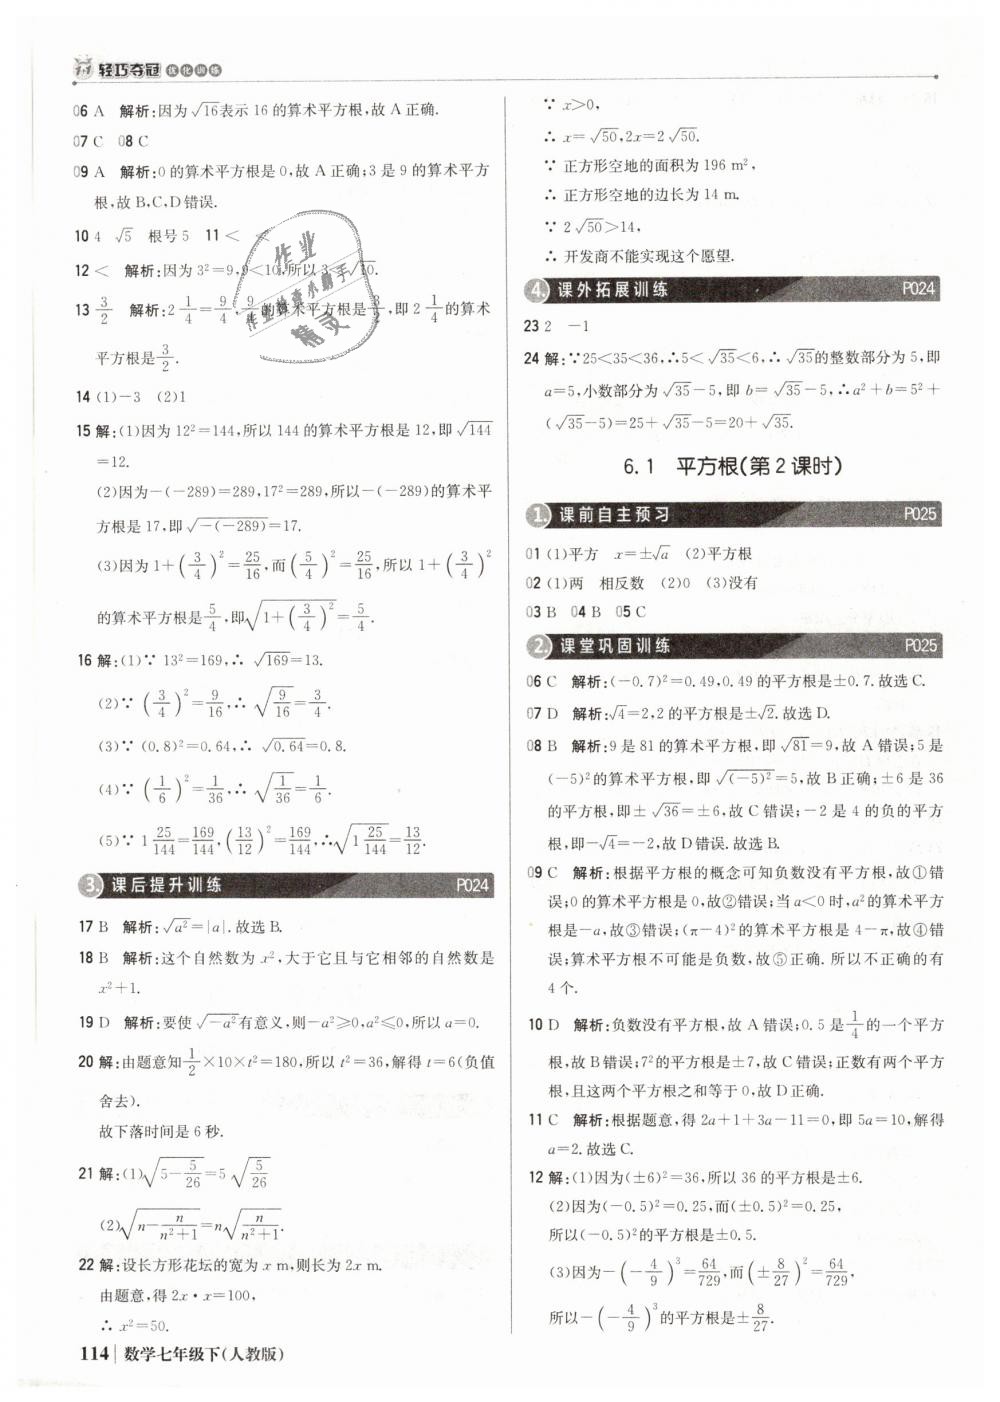 轻巧夺冠 优化训练
06 A 解析:因为√16表示 16 的算术平方根,故 A 正确.
07 C 08 C
09 A 解析:0 的算术平方根是 0,故 A 正确;3 是 9 的算术平方
根,故 B,C,D 错误.
10 4 √5 根号 5 11 <
12 < 解析:因为 3²=9,9<10,所以 3<√10.
13 3/2 解析:2 1/4=9/4,9/4的算术平方根是3/2,即 2 1/4的算术
平方根是3/2.
14 (1)-3 (2)1
15 解:(1)因为 12²=144,所以 144 的算术平方根是 12,即√144
=12.
(2)因为-(-289)=289,17²=289,所以-(-289)的算术平
方根是 17,即√(-(-289))=17.
(3)因为 1+(3/4)²=25/16,而(5/4)²=25/16,所以 1+(3/4)²
的算术平方根是5/4,即√(1+(3/4)²)=5/4.
16 解:(1)∵ 13²=169,∴ √169=13.
(2)∵ (3/4)²=9/16,∴ √(9/16)=3/4.
(3)∵ (0.8)²=0.64,∴ √0.64=0.8.
(4)∵ (1/6)²=1/36,∴ √(1/36)=1/6.
(5)∵ 1 25/144=169/144,(13/12)²=169/144,∴√(1 25/144)=13/12.
3. 课后提升训练 P024
17 B 解析:√a²=|a|.故选 B.
18 B 解析:这个自然数为 x²,大于它且与它相邻的自然数是
x²+1.
19 D 解析:要使√(-a²)有意义,则-a²≥0,a²≤0,所以 a=0.
20 解:由题意知1/2×10×t²=180,所以 t²=36,解得 t=6(负值
舍去).
故下落时间是 6 秒.
21 解:(1)√(5-5/26)=5√(5/26)
(2)√(n-n/(n²+1))=n√(n/(n²+1)).
22 解:设长方形花坛的宽为 x m,则长为 2x m.
由题意,得 2x·x=100,
∴ x²=50.
114 数学七年级下(人教版)
∵ x>0,
∴ x=√50,2x=2√50.
∵ 正方形空地的面积为 196 m²,
∴ 正方形空地的边长为 14 m.
∵ 2√50>14,
∴ 开发商不能实现这个愿望.
4. 课外拓展训练 P024
23 2 -1
24 解:∵25<35<36,∴5<√35<6,∴√35的整数部分为 5,即
a=5,小数部分为√35-5,即 b=√35-5,∴a²+b=5²+
(√35-5)=25+√35-5=20+√35.
6.1 平方根(第 2 课时)
1. 课前自主预习 P025
01 (1)平方 x=±√a (2)平方根
02 (1)两 相反数 (2)0 (3)没有
03 B 04 B 05 C
2. 课堂巩固训练 P025
06 C 解析:(-0.7)²=0.49,0.49 的平方根是±0.7.故选 C.
07 D 解析:√4=2,2 的平方根是±√2.故选 D.
08 B 解析:9 是 81 的算术平方根,即√81=9,故 A 错误;5 是
(-5)²的算术平方根,即√(-5)²=5,故 B 正确;±6 是 36
的平方根,即±√36=±6,故 C 错误;-2 是 4 的负的平方
根,即-√4=-2,故 D 错误.故选 B.
09 C 解析:根据平方根的概念可知负数没有平方根,故①错
误;0 的算术平方根是 0,故②错误;当 a<0 时,a²的算术平方
根是-a,故③错误;(π-4)²的算术平方根是 4-π,故④错
误;算术平方根不可能是负数,故⑤正确.所以不正确的有
4 个.
10 D 解析:负数没有平方根,故 A 错误;0.5 是1/4的一个平方
根,故 B 错误;7²的平方根是±7,故 C 错误;正数有两个平方
根,且这两个平方根之和等于 0,故 D 正确.
11 C 解析:根据题意,得 2a+1+3a-11=0,即 5a=10,解得
a=2.故选 C.
12 解:(1)因为(±6)²=36,所以 36 的平方根是±6.
(2)因为(-0.5)²=0.25,而(±0.5)²=0.25,
所以(-0.5)²的平方根是±0.5.
(3)因为-(-4/9)³=64/729,而(±8/27)²=64/729,
所以-(-4/9)³的平方根是±8/27.
作业
作业检查小助手
精灵